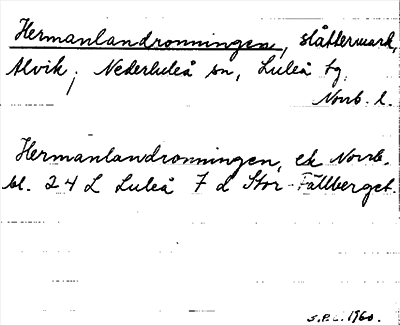 Hermanlandronningen, slåttermark,
Alvik, Nederluleå sn, Luleå tg.
Norrb. l.
Hermanlandronningen, ek Norrb.
bl. 24 L Luleå 7 d Stor-Fällberget.
S.P.L. 1960.